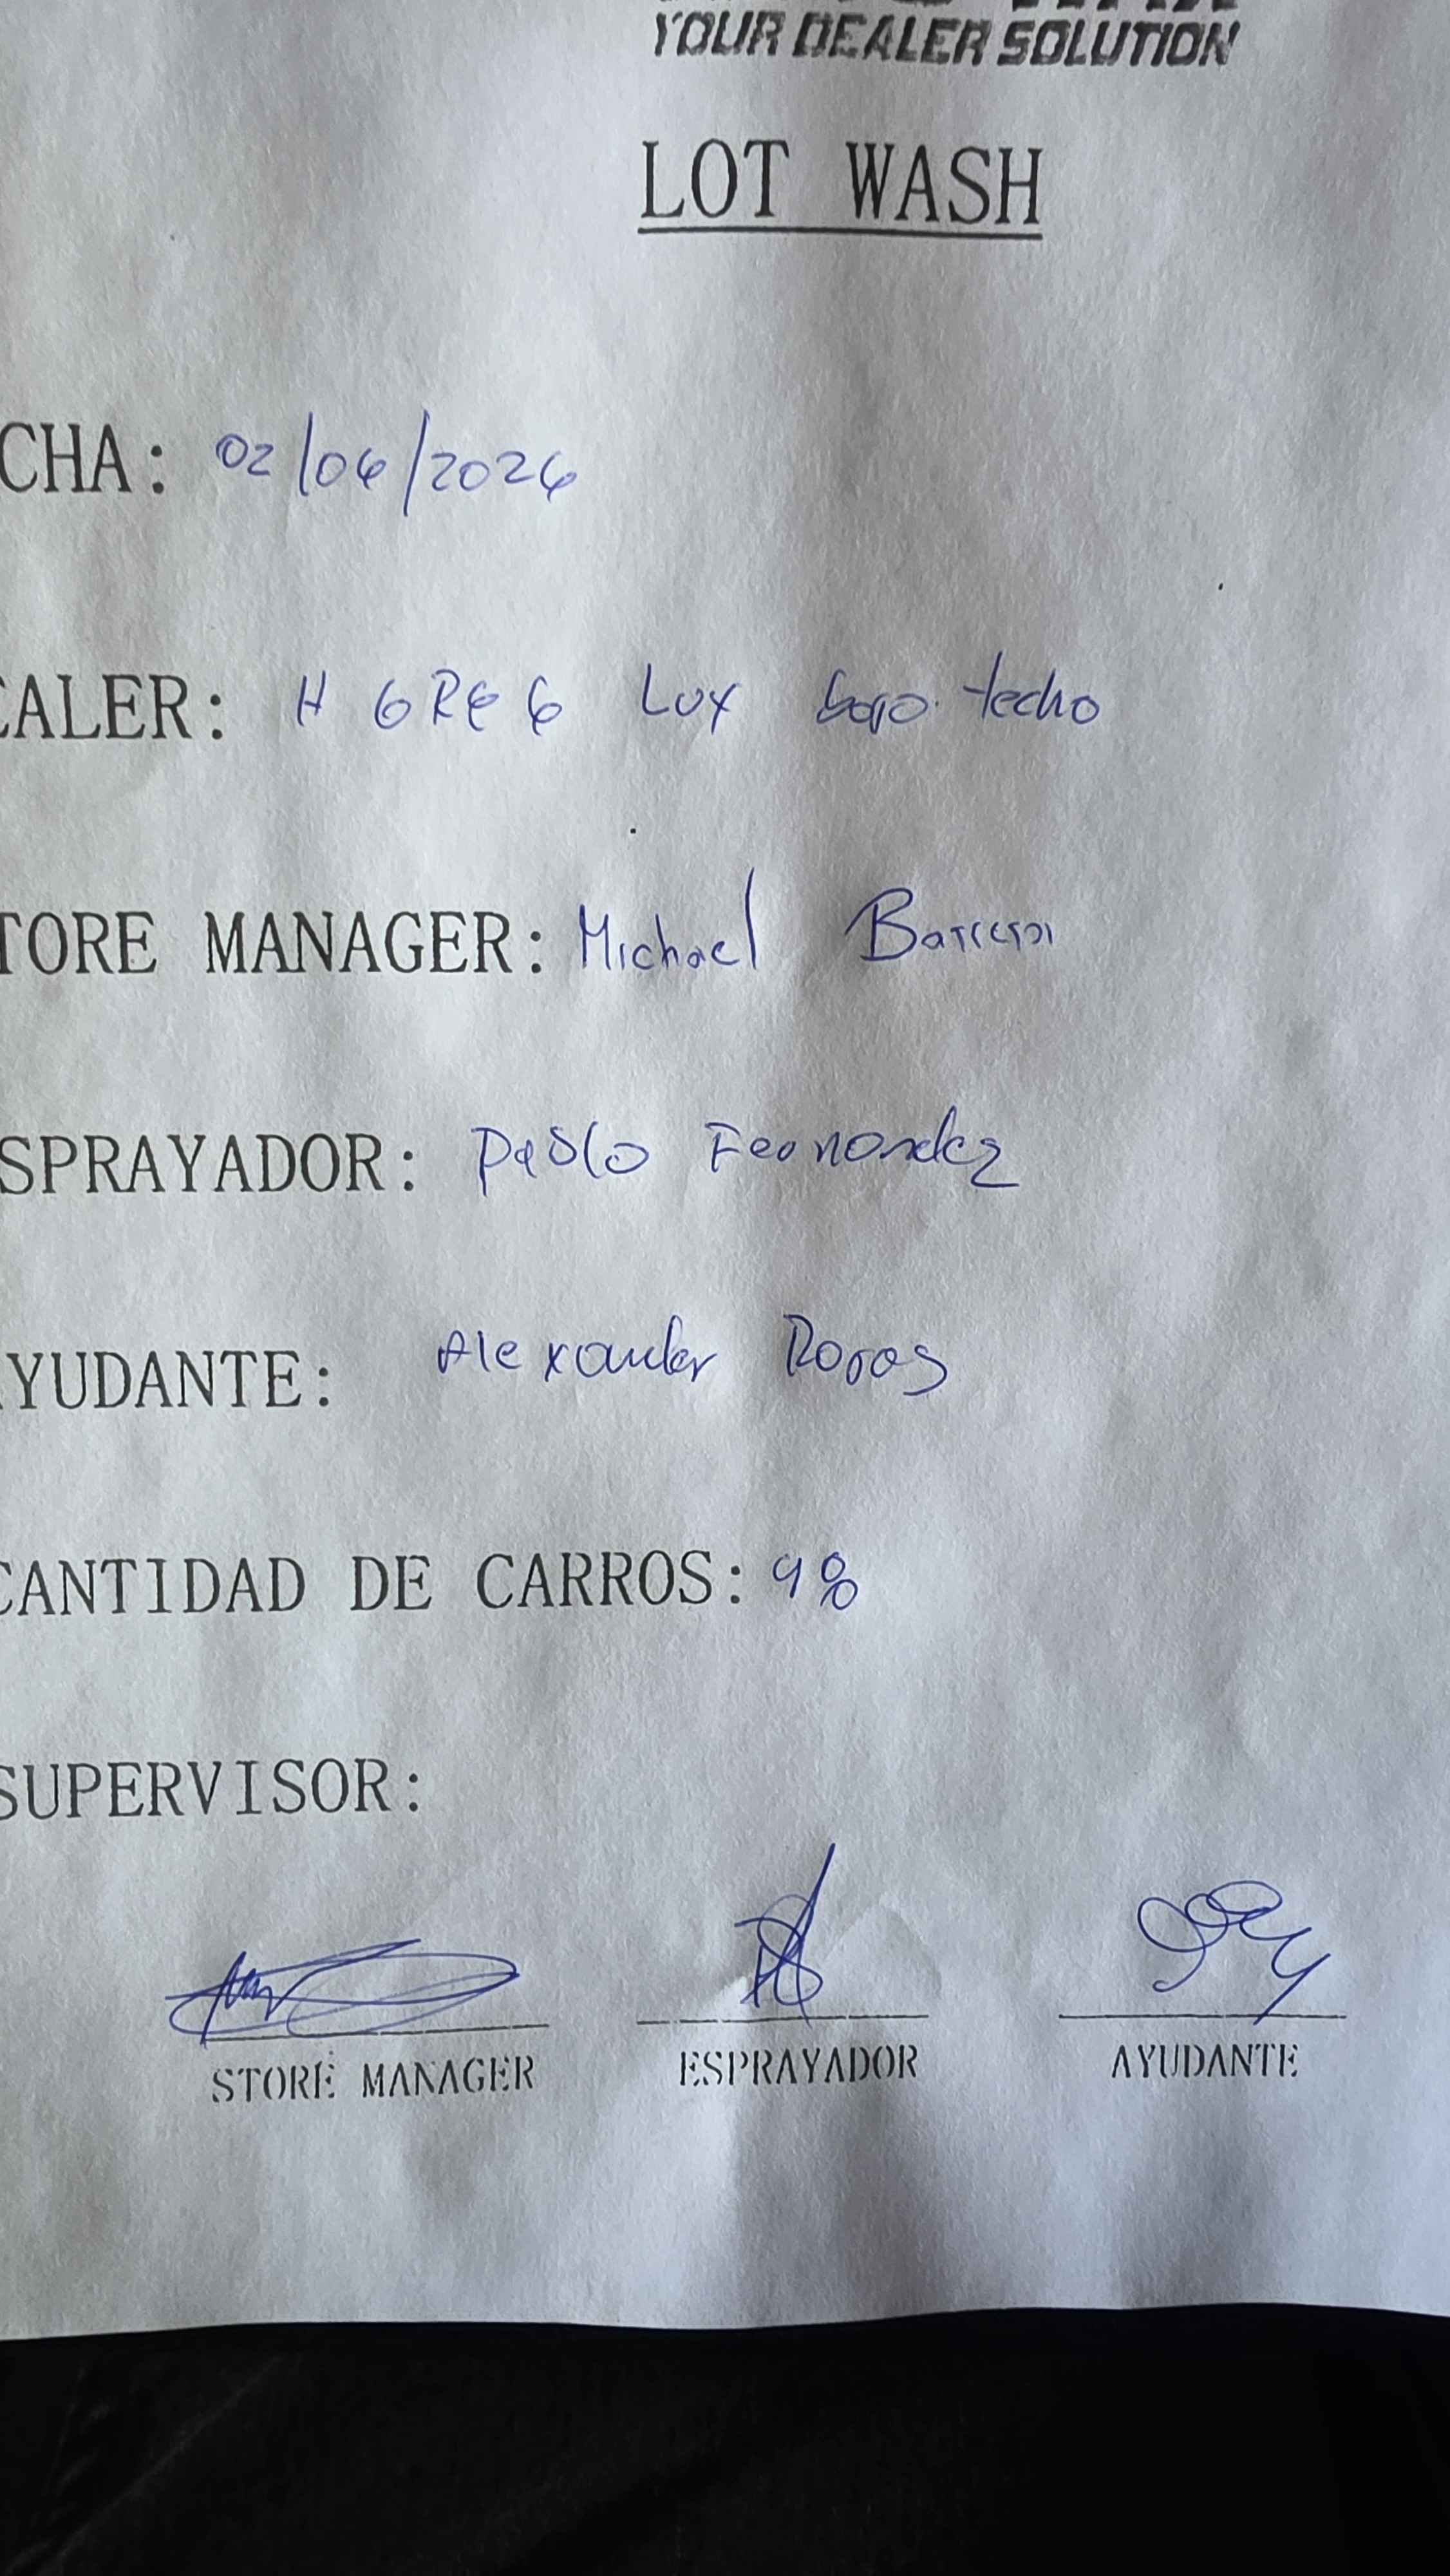 YOUR DEALER SOLUTION
LOT WASH
CHA: 02/06/2026
EALER: H GREG Lux bajo techo
TORE MANAGER: Michael
SPRAYADOR: Pablo Fernandez
AYUDANTE: Alexander Rojas
CANTIDAD DE CARROS: 98
SUPERVISOR:
STORE MANAGER ESPRAYADOR AYUDANTE